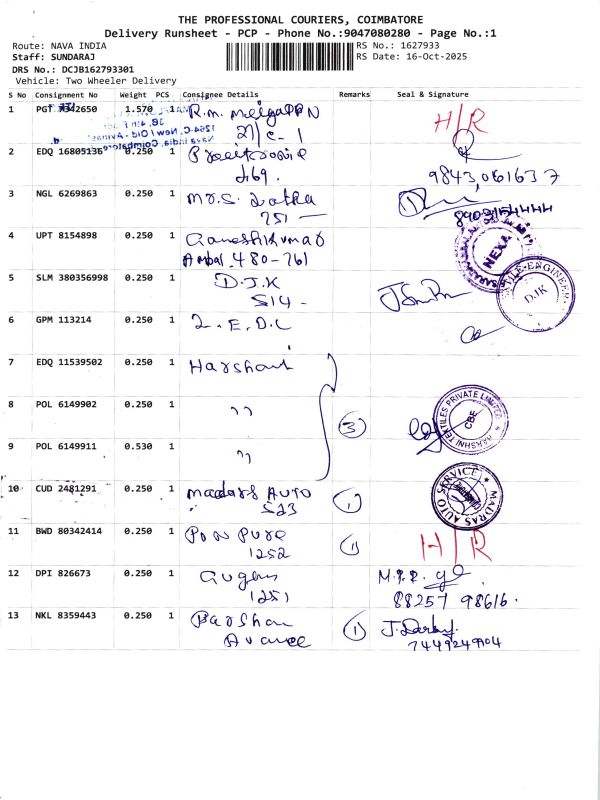 THE PROFESSIONAL COURIERS, COIMBATORE
Delivery Runsheet - PCP - Phone No.:9047080280 - Page No.:1
Route: NAVA INDIA
RS No.: 1627933
Staff: SUNDARAJ
RS Date: 16-Oct-2025
DRS No.: DCJB162793301
Vehicle: Two Wheeler Delivery
S No Consignment No Weight PCS Consignee Details Remarks Seal & Signature
1 PGT 1.570 1 R.m. H/R
2 EDQ 16805136 0.250 1
269. 9843061637
3 NGL 6269863 0.250 1 Mrs. Latha
751 -
4 UPT 8154898 0.250 1 Ganeshkumar
Ambal. 480-761 NEXA
5 SLM 380356998 0.250 1 D.J.K
514 - TILE-ENGINEER DJK
6 GPM 113214 0.250 1 L.E.D.C
7 EDQ 11539502 0.250 1 Harshani
8 POL 6149902 0.250 1 ,, 3 HARSHNI TEXTILES PRIVATE LIMITED CBE
9 POL 6149911 0.530 1 ,,
10 CUD 2481291 0.250 1 Madars Auto 1 MADRAS AUTO SERVICE
523
11 BWD 80342414 0.250 1 Pon Pure 1 H/R
1252
12 DPI 826673 0.250 1 M.P.R.
1251 88257 98616.
13 NKL 8359443 0.250 1 Darshan 1
Avance 7449249904